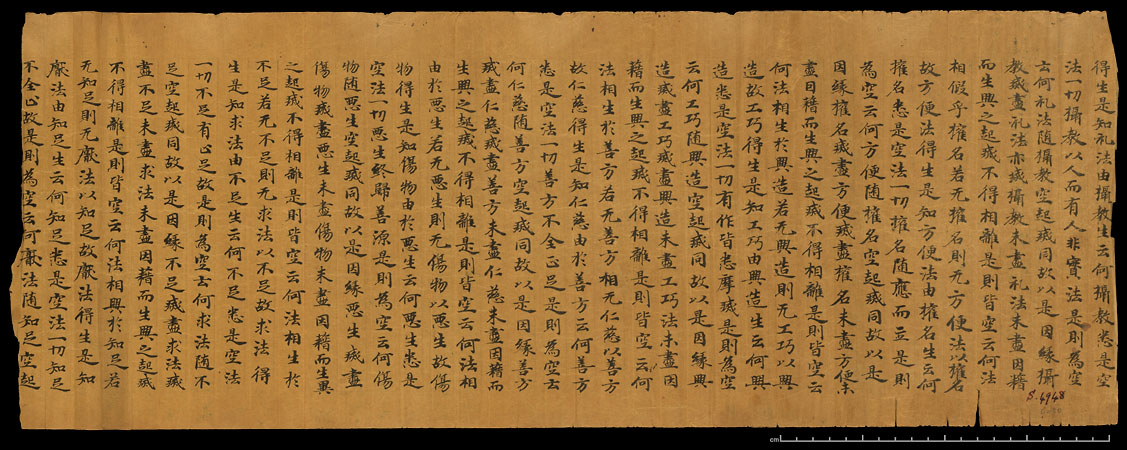 得生是知礼法由攝教生云何攝教悉是空
法一切攝教以人而有人非實法是則為空
云何礼法随攝教空起珬同故以是因緣攝
教珬盡礼法亦珬攝教未盡礼法未盡因籍
而生興之起珬不得相離是則皆空云何法
相假乎權名若无權名則无方便法以權名
故方便法得生是知方便法由權名生云何
權名悉是空法一切權名随應而立是則
為空云何方便随權名空起珬同故以是
因緣權名珬盡方便珬盡權名未盡方便未
盡因籍而生興之起珬不得相離是則皆空云
何法相生於興造若无興造則无工巧以興
造故工巧得生是知工巧由興造生云何興
造悉是空法一切有作皆悉摩珬是則為空
云何工巧随興造空起珬同故以是因緣興
造珬盡工巧珬盡興造未盡工巧法未盡因
籍而生興之起珬不得相離是則皆空云何
法相生於善方若无善方相无仁慈以善方
故仁慈得生是知仁慈由於善方云何善方
悉是空法一切善方不全正足是則為空云
何仁慈随善方空起珬同故以是因緣善方
珬盡仁慈珬盡善方未盡仁慈未盡因籍而
生興之起珬不得相離是則皆空云何法相
由於悪生若无悪生則无傷物以悪生故傷
物得生是知傷物由於悪生云何悪生悉是
空法一切悪生終歸善源是則為空云何傷
物随悪生空起珬同故以是因緣悪生珬盡
傷物珬盡悪生未盡傷物未盡因籍而生興
之起珬不得相離是則皆空云何法相生於
不足若无不足則无求法以不足故求法得
生是知求法由不足生云何不足悉是空法
一切不足有心足故是則為空云何求法随不
足空起珬同故以是因緣不足珬盡求法珬
盡不足未盡求法未盡因籍而生興之起珬
不得相離是則皆空云何法相興於知足若
无知足則无猒法以知足故猒法得生是知
猒法由知足生云何知足悉是空法一切知足
不全心故是則為空云何猒法随知足空起
S.4948
cm